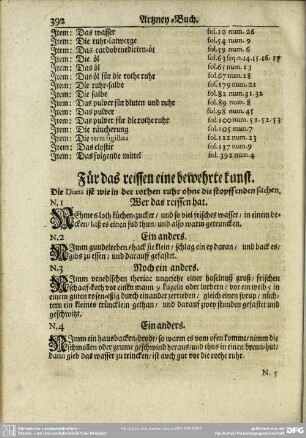 392 Artzney-Buch.
Item: Das wasser fol.10 num. 26
Item: Die ruhr-latwerge fol.54 num. 9
Item: Das cardobenedicten-öl fol.56 num. 6
Item: Die öl
Item: Das öl fol.65 num. 13
Item: Das öl für die rothe ruhr fol.67 num. 28
Item: Die ruhr-salbe fol.179 num. 21
Item: Die salbe fol.81 num. 31. 32
Item: Das pulver für bluten und ruhr fol.89 num. 8
Item: Das pulver fol.98 num. 45
Item: Das pulver für die rothe ruhr fol.100 num. 51. 52. 53
Item: Die räucherung fol.105 num. 7
Item: Die terra sigillata fol.122 num. 23
Item: Das clystir fol.137 num. 9
Item: Das folgende mittel fol.392 num. 4
Für das reissen eine bewehrte kunst.
Die Diæta ist wie in der rothen ruhr ohne die stopffenden sachen.
N. 1 Wer das reissen hat.
Nehme 2 loth küchen-zucker / und so viel frisches wasser / in einem be-
cken / laß es einen sud thun / und also warm getruncken.
N. 2 Ein anders.
Nimm gundelreben / hack sie klein / schlag ein ey daran / und back es /
gibs zu essen / und darauff gefastet.
N. 3 Noch ein anders.
Nimm venedischen theriac ungefehr einer haselnuß groß / frischen
schaaf-koth vor einen mann 9 kugeln oder lorbern / vor ein weib 7 in
einem guten rosen-essig durch einander zertrieben / gleich einem syrup / nüch-
tern ein kleines trüncklein gethan / und darauf zwey stunden gefastet und
geschwitzt.
N. 4 Ein anders.
Nimm ein hausbacken-brodt / so warm es vom ofen kommt / nimm die
schmollen oder grume geschwind heraus / und thus in einen brenn-hut /
dann gieb das wasser zu trincken / ist auch gut vor die rothe ruhr.
N. 5